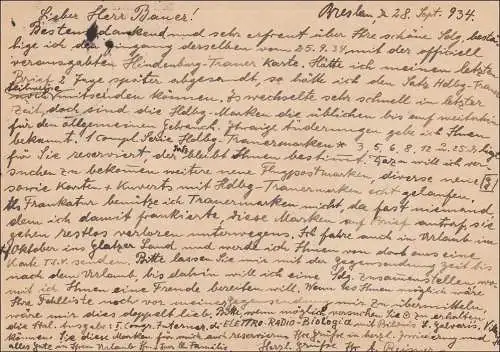 Lieber Herr Bauer! Breslau, d. 28. Sept. 934.
Bestens dankend und sehr erfreut über Ihre schöne Sdg. bestä-
tige ich den Eingang derselben vom 25.9.34, mit der officiell
verausgabten Hindenburg-Trauer Karte. Hätte ich meinen letzten
Brief 2 Tage später abgesandt, so hätte ich den Satz Hdbg-Trauer
mitsenden können. Es wechselte sehr schnell in letzter
Zeit, doch sind die Hdbg-Marken die üblichen bis auf weiteres
für den allgemeinen Gebrauch. Etwaige Änderungen gebe ich Ihnen
bekannt. 1 Compl. Serie Hdbg-Trauermarken * 3, 5, 6, 8, 12 u. 25 Pf.
für Sie reserviert, der bleibt Ihnen bestimmt. Dazu will ich ver-
suchen zu bekommen weitere neue Flugpostmarken, diverse neue
sowie Karten & Kuverts mit Hdbg-Trauermarken echt gelaufen.
Als Frankatur benütze ich Trauermarken nicht, da fast niemand
dem ich damit frankierte, diese Marken auf Brief antraf, sie
gehen restlos verloren unterwegens. Ich fahre auch in Urlaub im
Oktober ins Glatzer Land und werde ich Ihnen von dort aus eine
Karte senden. Bitte lassen Sie mir mit der Gegensendung Zeit bis
nach dem Urlaub, bis dahin will ich eine Sdg. zusammenstellen, wo-
mit ich Ihnen eine Freude bereiten will. Wenn es Ihnen möglich wäre
Ihre Fehlliste noch vor meiner Gegensendung mir zu übermitteln
wäre mir dies doppelt lieb. Bitte, wenn möglich versuchen Sie zu erhalten
die Ital. Ausgabe: I. Congr. Internaz. di ELETTRO-RADIO-Biologia mit Bildnis L. Galvanis,
können Sie diese Marken für mich auch reservieren
alles Gute in Ihrem Urlaub Ihr & Familie Herzl. Grüße Ihr